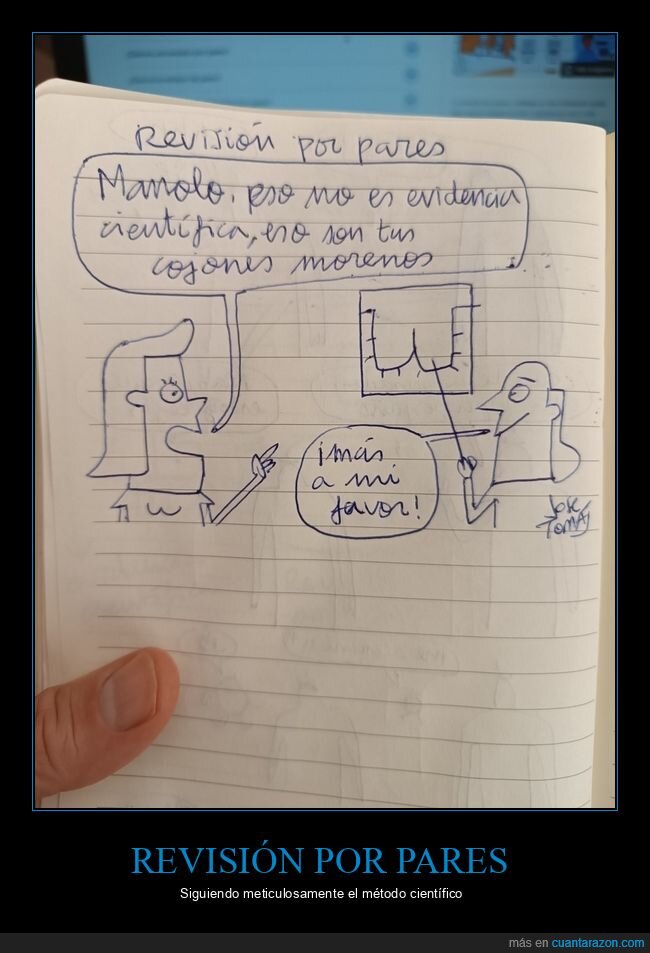 Revisión por pares
Manolo, eso no es evidencia
científica, eso son tus
cojones morenos
¡más
a mi
favor!
JOSE
TOMÁS
REVISIÓN POR PARES
Siguiendo meticulosamente el método científico
más en cuantarazon.com